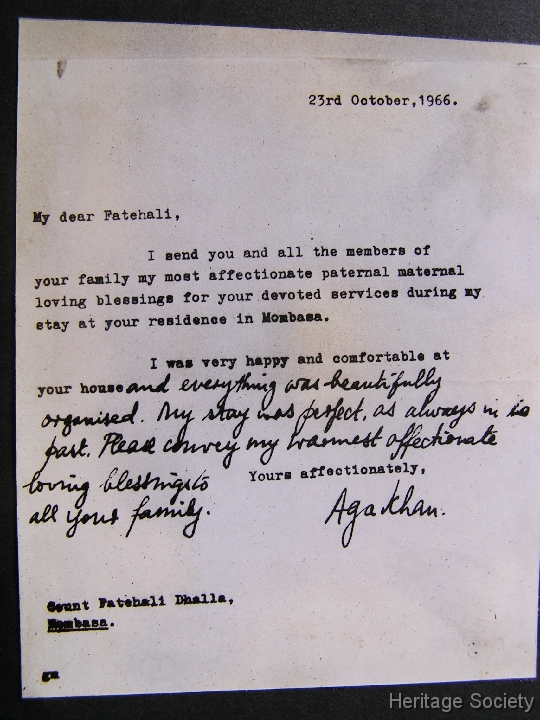 23rd October, 1966.
My dear Fatehali,
I send you and all the members of
your family my most affectionate paternal maternal
loving blessings for your devoted services during my
stay at your residence in Mombasa.
I was very happy and comfortable at
your house and everything was beautifully
organised. My stay was perfect, as always in
past. Please convey my warmest affectionate
loving blessings to
Yours affectionately,
all your family.
Aga Khan.
Count Fatehali Dhalla,
Mombasa.
gm
Heritage Society